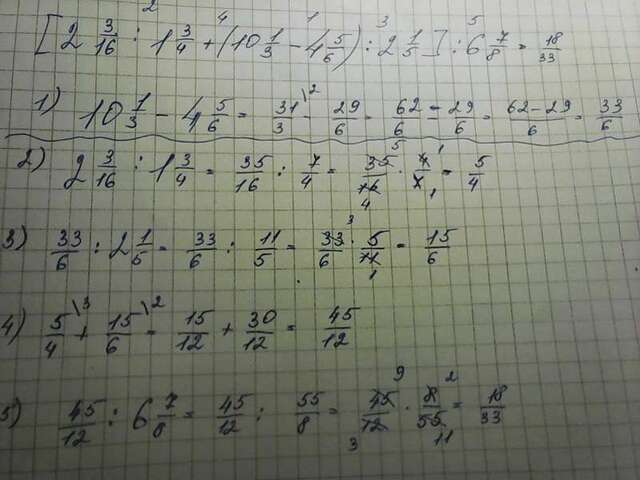 [2 3/16 : 1 3/4 + (10 1/3 - 4 5/6) : 2 1/5] : 6 7/8 = 18/33
1) 10 1/3 - 4 5/6 = 31/3 \2 - 29/6 = 62/6 - 29/6 = 62-29/6 = 33/6
2) 2 3/16 : 1 3/4 = 35/16 : 7/4 = 35/16 · 4/7 = 5/4
3) 33/6 : 2 1/5 = 33/6 : 11/5 = 33/6 · 5/11 = 15/6
4) 5/4 \3 + 15/6 \2 = 15/12 + 30/12 = 45/12
5) 45/12 : 6 7/8 = 45/12 : 55/8 = 45/12 · 8/55 = 18/33